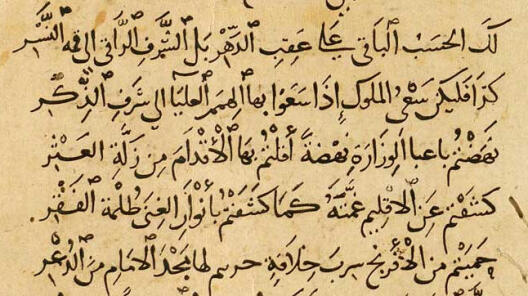 لك الحسب الباقي على عقب الدهر بل الشرف الراقي الى قمة النسر
كذا فليكن سعى الملوك إذا سعوا بها الهمم العليا الى شرف الذكر
نهضتم باعبا الوزارة نهضة أقلتم بها الأقدام من زلة العثر
كشفتم عن الاقليم غمته كما كشفتم بأنوار الغنى ظلمة الفقر
حميتم من الافرنج سرب خلافة حرستم لها مجد الامام من الذعر